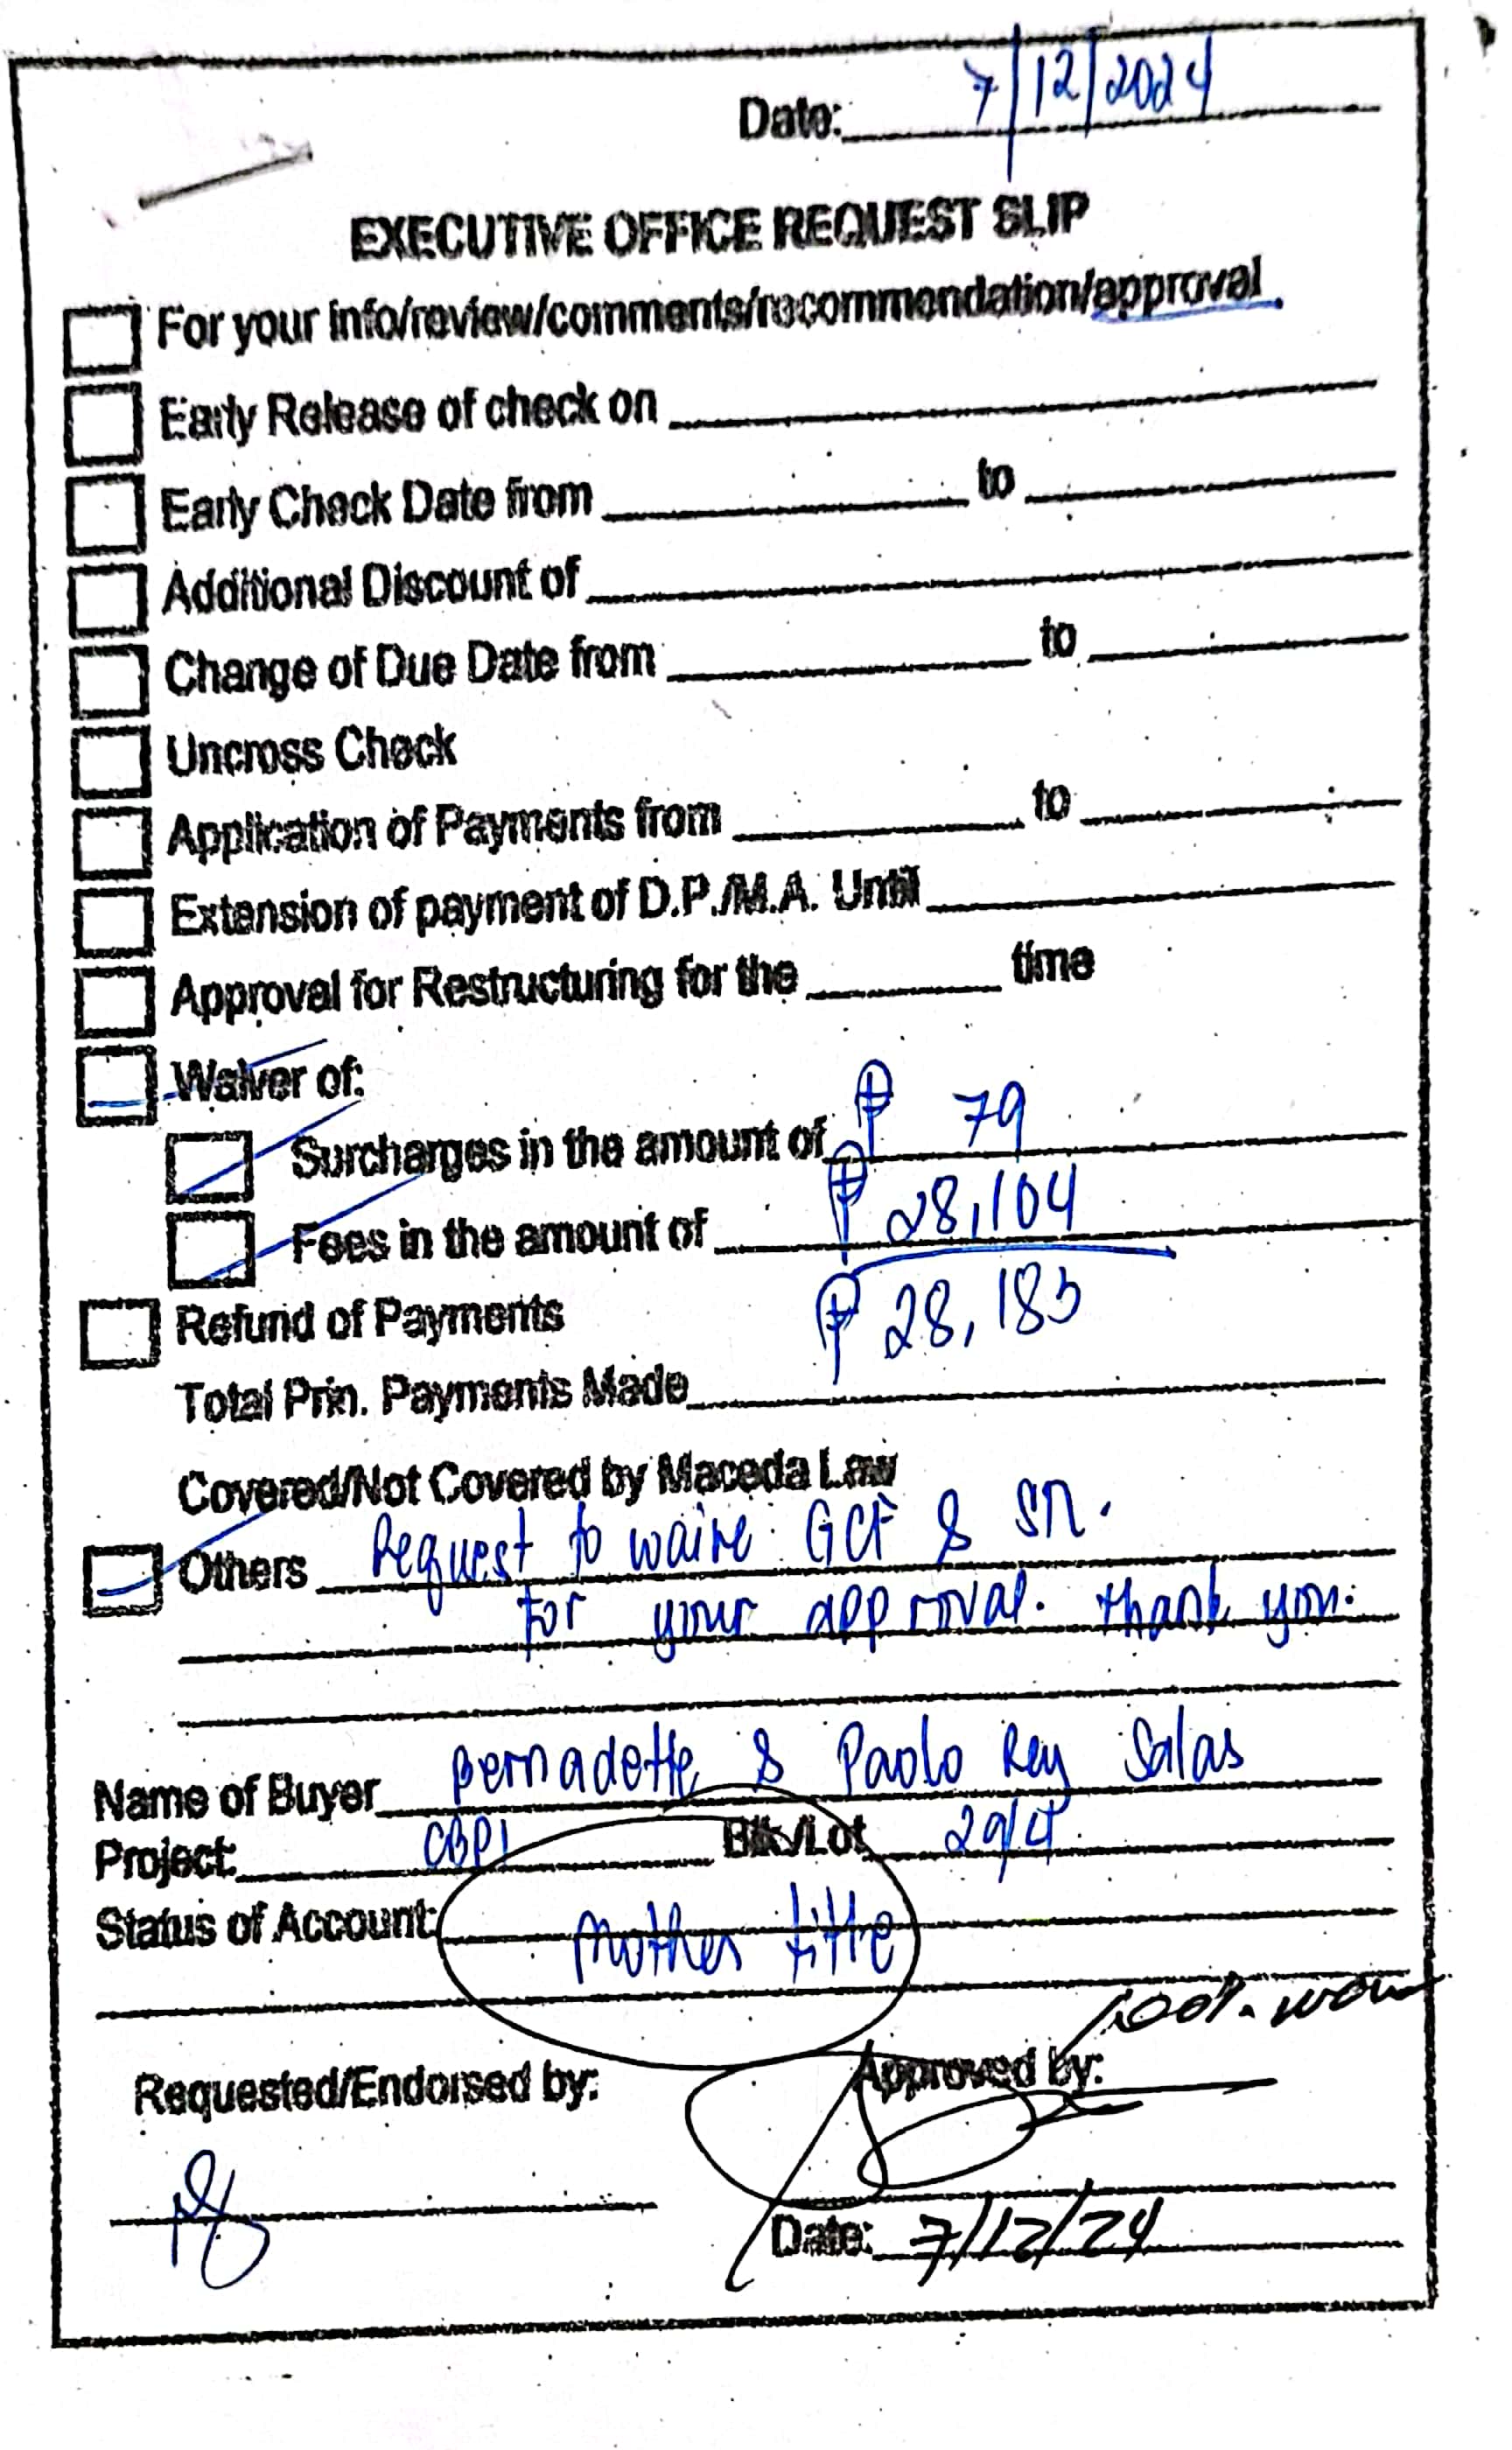 Date: 7/12/2024
EXECUTIVE OFFICE REQUEST SLIP
For your info/review/comments/recommendation/approval
Early Release of check on
Early Check Date from to
Additional Discount of
Change of Due Date from to
Uncross Check
Application of Payments from to
Extension of payment of D.P./M.A. Until
Approval for Restructuring for the time
Waiver of:
Surcharges in the amount of ₱ 79
Fees in the amount of ₱ 28,104
₱ 28,183
Refund of Payments
Total Prin. Payments Made
Covered/Not Covered by Maceda Law
Others Request to waive GCF & SR.
For your approval. Thank you.
Name of Buyer Bernadette & Paolo Rey Salas
Project: CBP1 Blk/Lot 29/4
Status of Account: Mother title
100%
Requested/Endorsed by: Approved by:
Date: 7/12/24